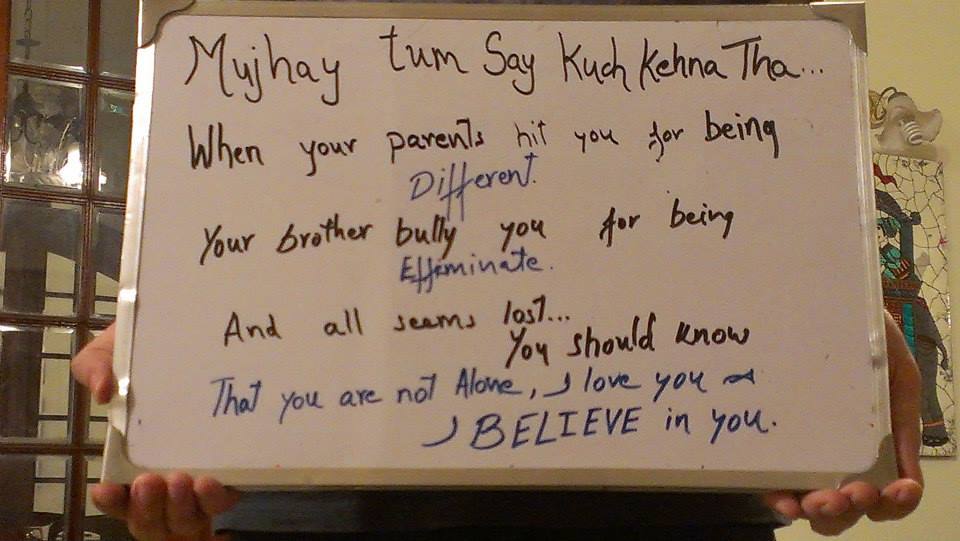 Mujhay tum Say Kuch Kehna Tha...
When your parents hit you for being
Different.
Your brother bully you for being
Effiminate.
And all seems lost...
You should know
That you are not Alone, I love you &
I BELIEVE in you.